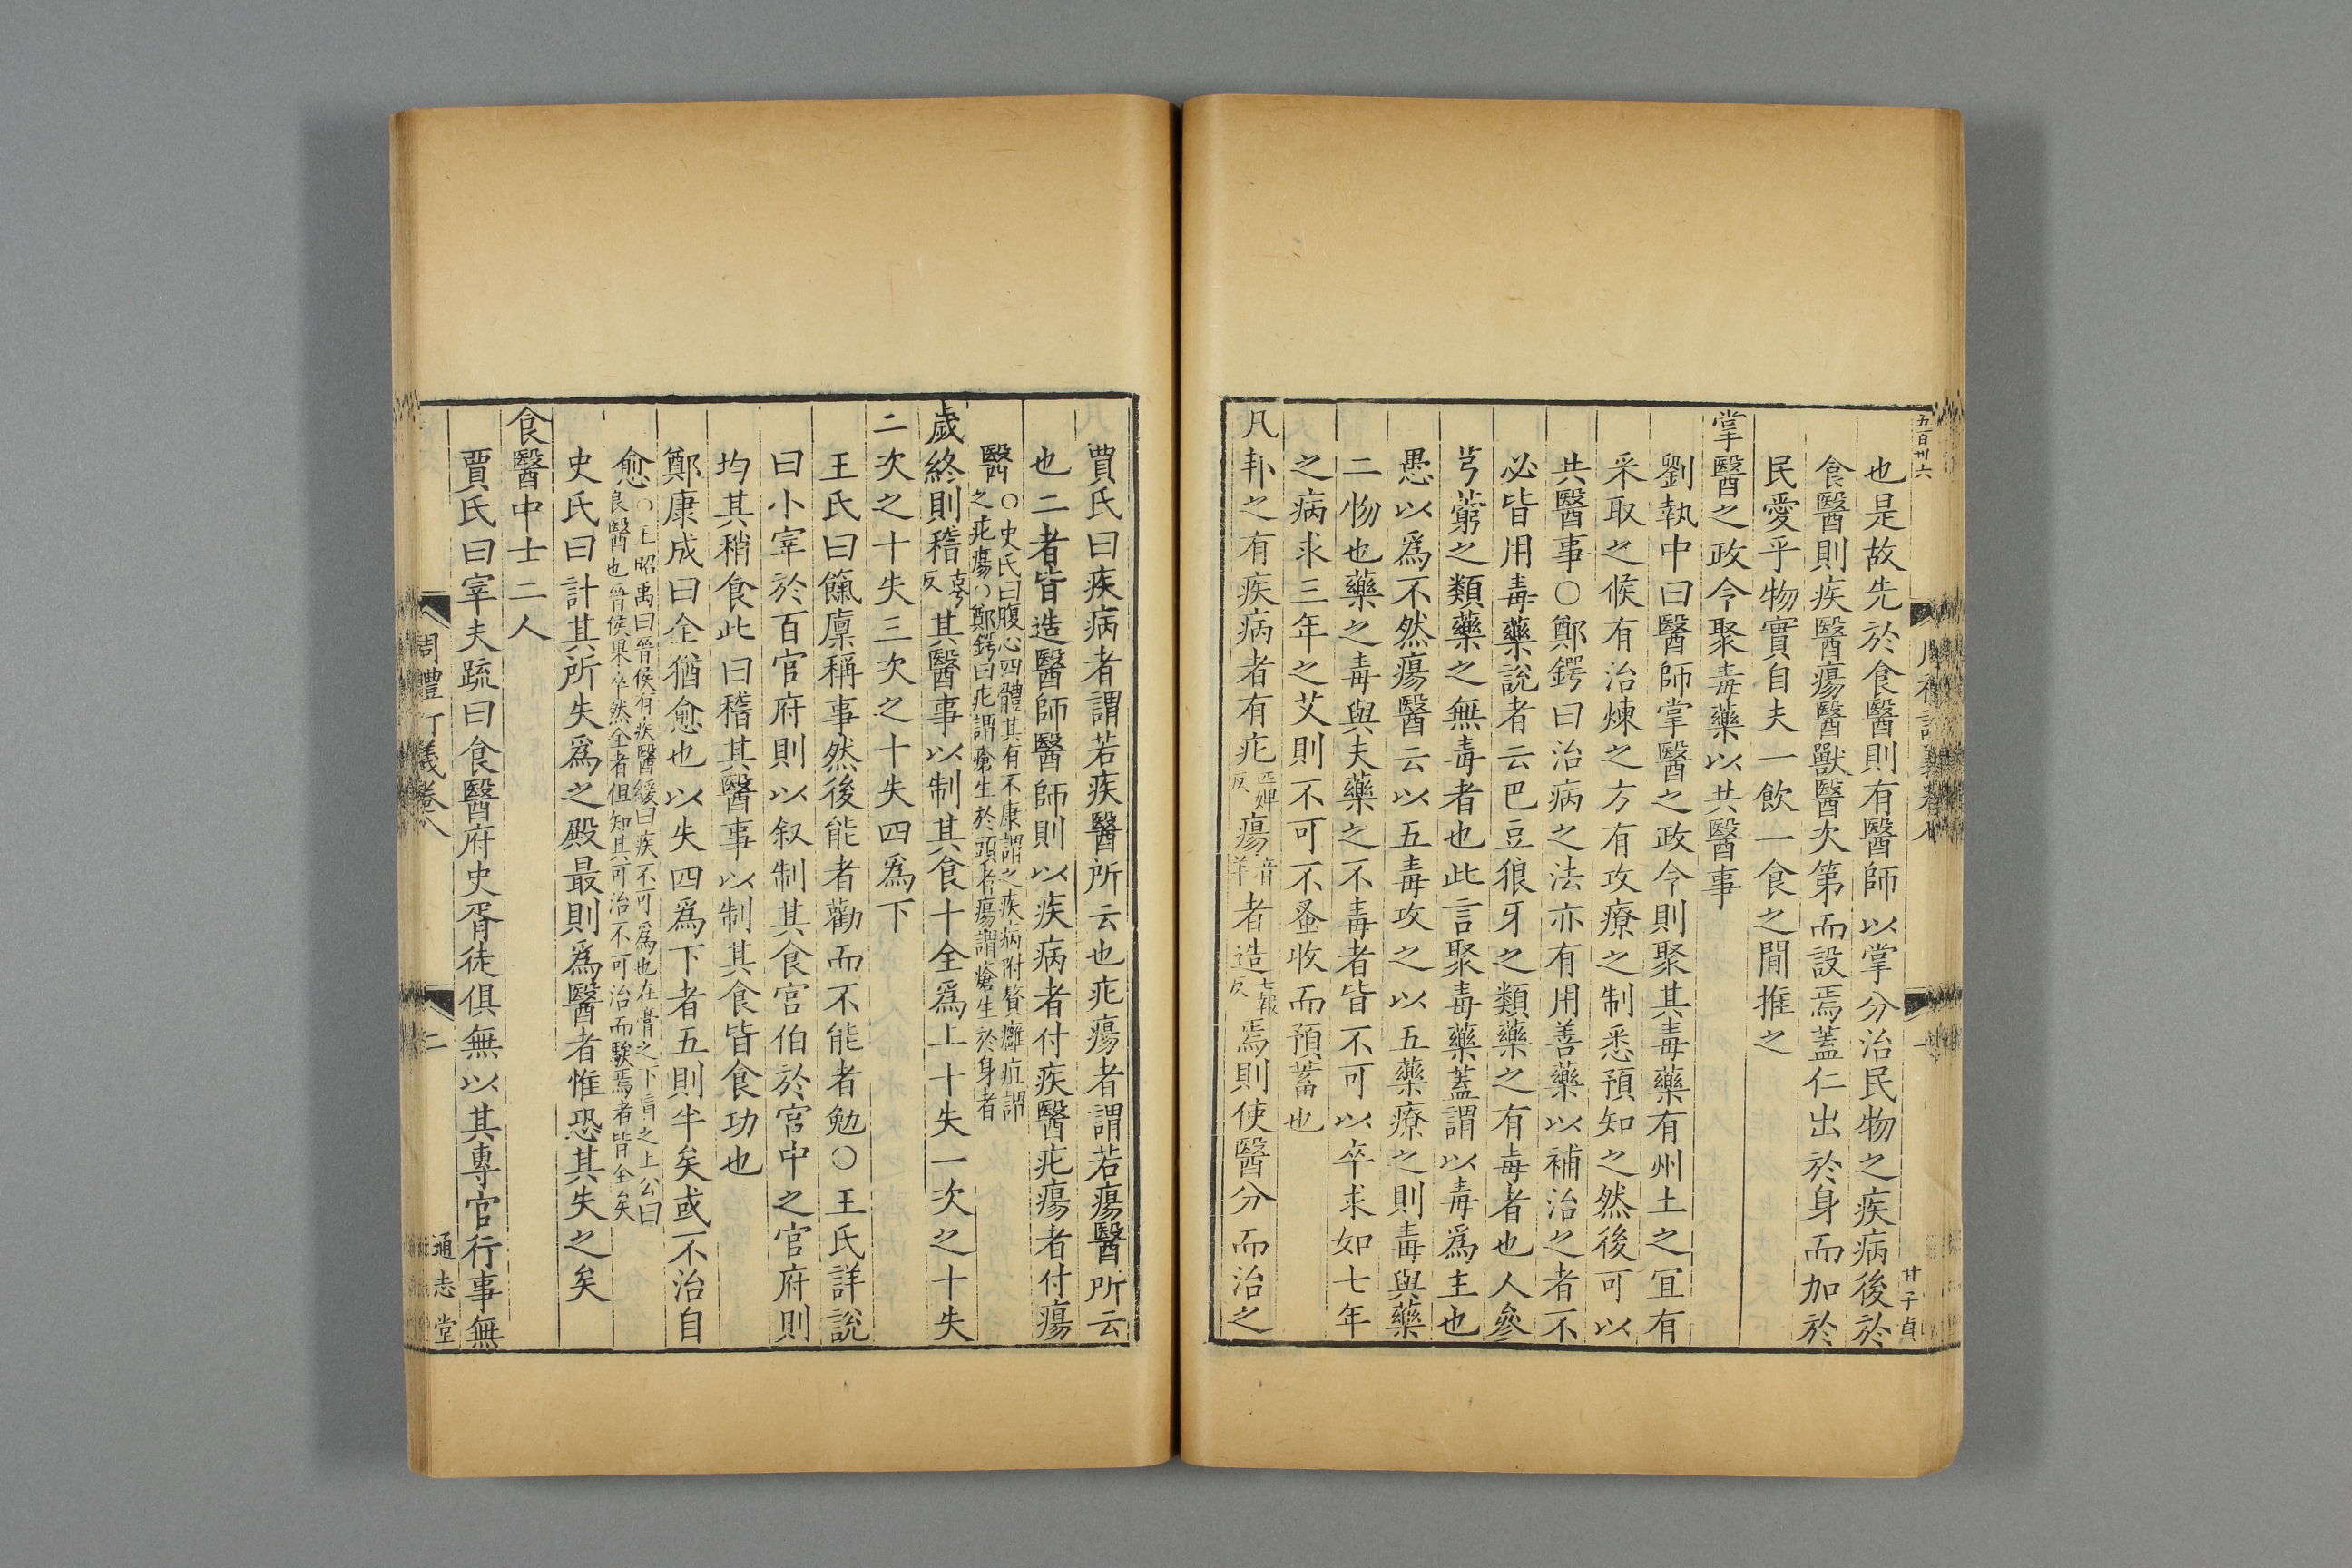 五百卅六
甘子貞
也是故先於食醫則有醫師以掌分治民物之疾病後於
食醫則疾醫瘍醫獸醫次第而設焉蓋仁出於身而加於
民愛乎物實自夫一飲一食之間推之
掌醫之政令聚毒藥以共醫事
劉執中曰醫師掌醫之政令則聚其毒藥有州土之宜有
采取之候有治煉之方有攻療之制悉預知之然後可以
共醫事○鄭鍔曰治病之法亦有用善藥以補治之者不
必皆用毒藥說者云巴豆狼牙之類藥之有毒者也人參
芎藭之類藥之無毒者也此言聚毒藥蓋謂以毒爲主也
愚以爲不然瘍醫云以五毒攻之以五藥療之則毒與藥
二物也藥之毒與夫藥之不毒者皆不可以卒求如七年
之病求三年之艾則不可不蚤收而預蓄也
凡邦之有疾病者有疕匹婢反瘍音羊者造七報反焉則使醫分而治之
賈氏曰疾病者謂若疾醫所云也疕瘍者謂若瘍醫所云
也二者皆造醫師醫師則以疾病者付疾醫疕瘍者付瘍
醫○史氏曰腹心四體其有不康謂之疾病附贅癰疽謂
之疕瘍○鄭鍔曰疕謂瘡生於頭者瘍謂瘡生於身者
歲終則稽古兮反其醫事以制其食十全爲上十失一次之十失
二次之十失三次之十失四爲下
王氏曰餼廩稱事然後能者勸而不能者勉○王氏詳說
曰小宰於百官府則以叙制其食宮伯於宮中之官府則
均其稍食此曰稽其醫事以制其食皆食功也
鄭康成曰全猶愈也以失四爲下者五則半矣或不治自
愈○王昭禹曰晉侯有疾醫緩曰疾不可爲也在膏之下肓之上公曰
良醫也晉侯果卒然全者但知其可治不可治而騐焉者皆全矣
史氏曰計其所失爲之殿最則爲醫者惟恐其失之矣
食醫中士二人
賈氏曰宰夫疏曰食醫府史胥徒俱無以其專官行事無
周禮訂義卷八
二
通志堂